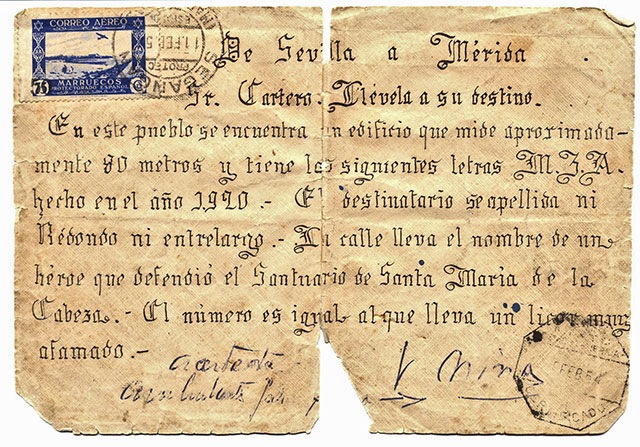 CORREO AEREO
75 Cs
MARRUECOS
PROTECTORADO ESPAÑOL
11.FEB.5
De Sevilla a Mérida
Sr. Cartero: Llévela a su destino.
En este pueblo se encuentra un edificio que mide aproximada-
mente 80 metros y tiene las siguientes letras M.Z.A.
hecho en el año 1.920.- El destinatario se apellida ni
Redondo ni entrelargo.- La calle lleva el nombre de un
héroe que defendió el Santuario de Santa María de la
Cabeza.- El número es igual at que lleva un licor muy
afamado.-
FEB 54